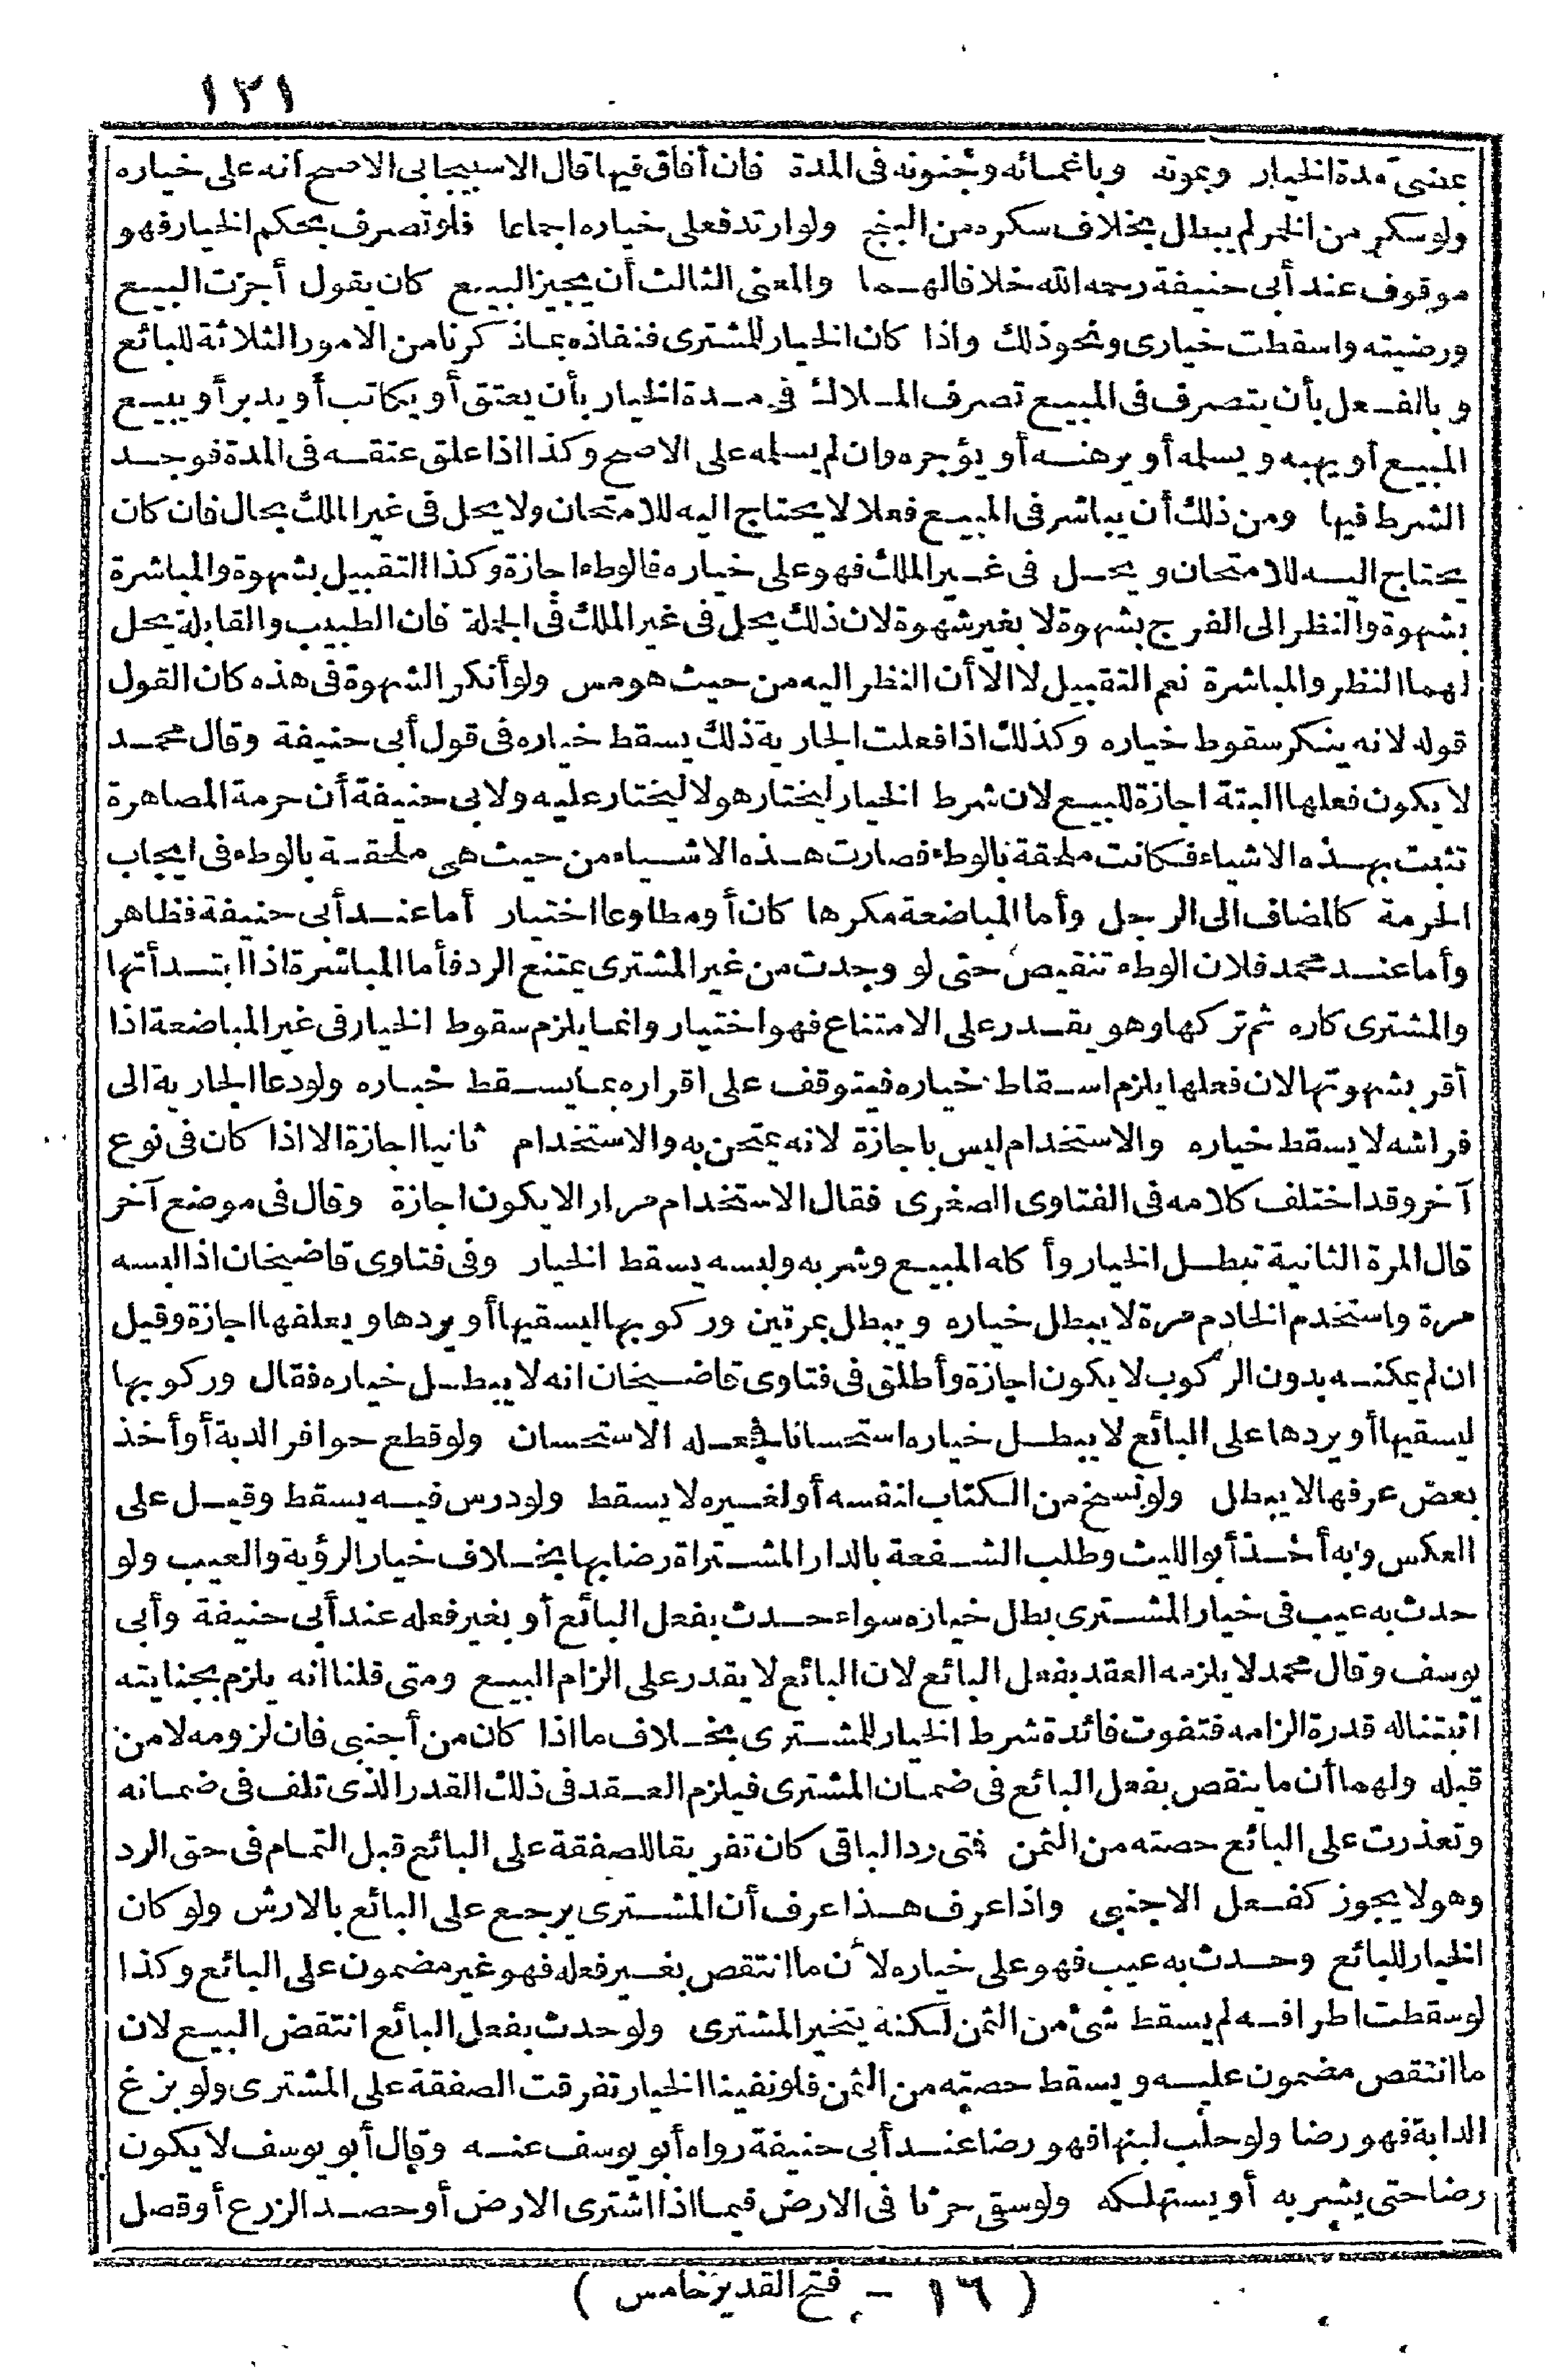 ١٢١
بمضى مدة الخيار وبموته وباغمائه وجنونه فى المدة فان أفاق فيها قال الاسبيجابى الاصح أنه على خياره
ولو سكر من الخمر لم يبطل بخلاف سكره من البنج ولو ارتد فعلى خياره اجماعا فلو تصرف بحكم الخيار فهو
موقوف عند أبى حنيفة رحمه الله خلافا لهما والمعنى الثالث أن يجيز البيع كان يقول أجزت البيع
ورضيته واسقطت خيارى ونحو ذلك واذا كان الخيار للمشترى فنفاذه بما ذكرنا من الامور الثلاثة للبائع
وبالفعل بأن يتصرف فى المبيع تصرف الملاك فى مدة الخيار بأن يعتق أو يكاتب أو يدبر أو يبيع
المبيع أو يهبه ويسلمه أو يرهنه أو يؤجره وان لم يسلمه على الاصح وكذا اذا علق عتقه فى المدة فوجد
الشرط فيها ومن ذلك أن يباشر فى المبيع فعلا لا يحتاج اليه للامتحان ولا يحل فى غير الملك بحال فان كان
يحتاج اليه للامتحان ويحل فى غير الملك فهو على خياره فالوطء اجازة وكذا التقبيل بشهوة والمباشرة
بشهوة والنظر الى الفرج بشهوة لا بغير شهوة لان ذلك يحل فى غير الملك فى الجملة فان الطبيب والقابلة يحل
لهما النظر والمباشرة نعم التقبيل لا الا أن النظر اليه من حيث هو مس ولو أنكر الشهوة فى هذه كان القول
قوله لانه ينكر سقوط خياره وكذلك اذا فعلت الجارية ذلك يسقط خياره فى قول أبى حنيفة وقال محمد
لا يكون فعلها البتة اجازة للبيع لان شرط الخيار ليختار هو لا ليختار عليه ولابى حنيفة أن حرمة المصاهرة
تثبت بهذه الاشياء فكانت ملحقة بالوطء فصارت هذه الاشياء من حيث هى ملحقة بالوطء فى ايجاب
الحرمة كالمضاف الى الرجل وأما المباضعة مكرها كان أو مطاوعا اختيار أما عند أبى حنيفة فظاهر
وأما عند محمد فلان الوطء تنقيص حتى لو وجدت من غير المشترى يمتنع الرد فأما المباشرة اذا ابتدأتها
والمشترى كاره ثم تركها وهو يقدر على الامتناع فهو اختيار وانما يلزم سقوط الخيار فى غير المباضعة اذا
أقر بشهوتها لان فعلها يلزم اسقاط خياره فيتوقف على اقراره بما يسقط خياره ولو دعا الجارية الى
فراشه لا يسقط خياره والاستخدام ليس باجازة لانه يمتحن به والاستخدام ثانيا اجازة الا اذا كان فى نوع
آخر وقد اختلف كلامه فى الفتاوى الصغرى فقال الاستخدام مرارا لا يكون اجازة وقال فى موضع آخر
قال المرة الثانية تبطل الخيار وأكله المبيع وشربه ولبسه يسقط الخيار وفى فتاوى قاضيخان اذا لبسه
مرة واستخدم الخادم مرة لا يبطل خياره ويبطل بمرتين وركوبها ليسقيها أو يردها ويعلفها اجازة وقيل
ان لم يمكنه بدون الركوب لا يكون اجازة وأطلق فى فتاوى قاضيخان انه لا يبطل خياره فقال وركوبها
ليسقيها أو يردها على البائع لا يبطل خياره استحسانا فجعله الاستحسان ولو قطع حوافر الدبة أو أخذ
بعض عرفها لا يبطل ولو نسخ من الكتاب لنفسه أو لغيره لا يسقط ولو درس فيه يسقط وقيل على
العكس وبه أخذ أبو الليث وطلب الشفعة بالدار المشتراة رضا بها بخلاف خيار الرؤية والعيب ولو
حدث به عيب فى خيار المشترى بطل خياره سواء حدث بفعل البائع أو بغير فعله عند أبى حنيفة وأبى
يوسف وقال محمد لا يلزمه العقد بفعل البائع لان البائع لا يقدر على الزام البيع ومتى قلنا انه يلزم بجنايته
اثبتنا له قدرة الزامه فتفوت فائدة شرط الخيار للمشترى بخلاف ما اذا كان من أجنبى فان لزومه لا من
قبله ولهما أن ما ينقص بفعل البائع فى ضمان المشترى فيلزم العقد فى ذلك القدر الذى تلف فى ضمانه
وتعذرت على البائع حصته من الثمن فمتى رد الباقى كان تفريقا للصفقة على البائع قبل التمام فى حق الرد
وهو لا يجوز كفعل الاجنبى واذا عرف هذا عرف أن المشترى يرجع على البائع بالارش ولو كان
الخيار للبائع وحدث به عيب فهو على خياره لأن ما انتقص بغير فعله فهو غير مضمون على البائع وكذا
لو سقطت اطرافه لم يسقط شئ من الثمن لكنه يتخير المشترى ولو حدث بفعل البائع انتقض البيع لان
ما انتقص مضمون عليه ويسقط حصته من الثمن فلو نفينا الخيار تفرقت الصفقة على المشترى ولو بزغ
الدابة فهو رضا ولو حلب لبنها فهو رضا عند أبى حنيفة رواه أبو يوسف عنه وقال أبو يوسف لا يكون
رضا حتى يشربه أو يستهلكه ولو سقى حرثا فى الارض فيما اذا اشترى الارض أو حصد الزرع أو قصل
( ١٦ - فتح القدير خامس )